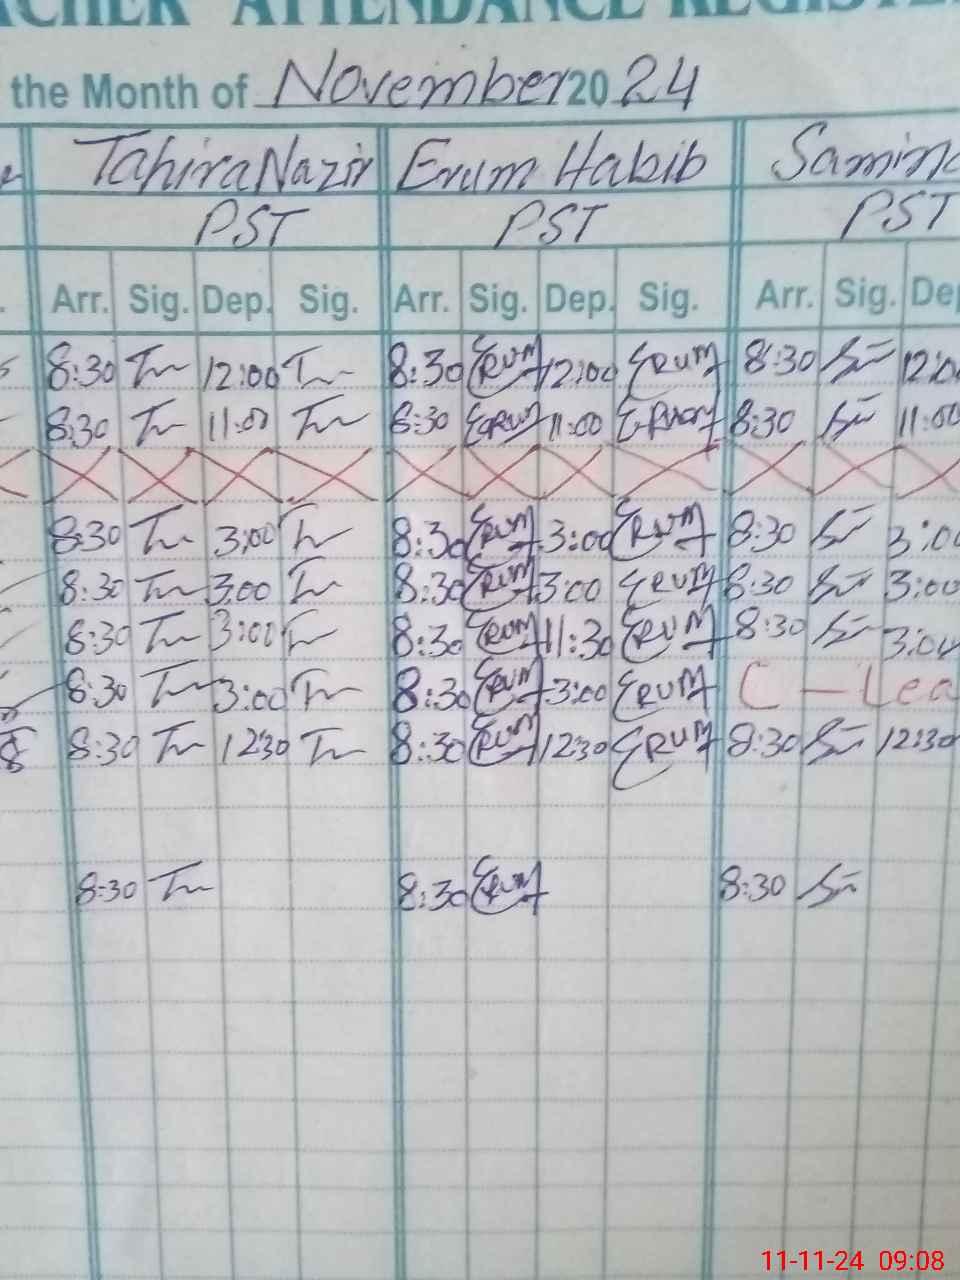 ACHER ATTENDANCE REGISTE
the Month of November 2024
Tahira Nazir Erum Habib Samina
PST PST PST
Arr. Sig. Dep. Sig. Arr. Sig. Dep. Sig. Arr. Sig. Dep
8:30 Tn 12:00 Tn 8:30 ERUM 12:00 ERUM 8:30 12:00
8:30 Tn 11:00 Tn 8:30 ERUM 11:00 ERUM 8:30 11:00
8:30 Tn 3:00 Tn 8:30 ERUM 3:00 ERUM 8:30 3:00
8:30 Tn 3:00 Tn 8:30 ERUM 3:00 ERUM 8:30 3:00
8:30 Tn 3:00 Tn 8:30 ERUM 11:30 ERUM 8:30 3:00
8:30 Tn 3:00 Tn 8:30 ERUM 3:00 ERUM C - Lea
8:30 Tn 12:30 Tn 8:30 ERUM 12:30 ERUM 8:30 12:30
8:30 Tn 8:30 ERUM 8:30
11-11-24 09:08